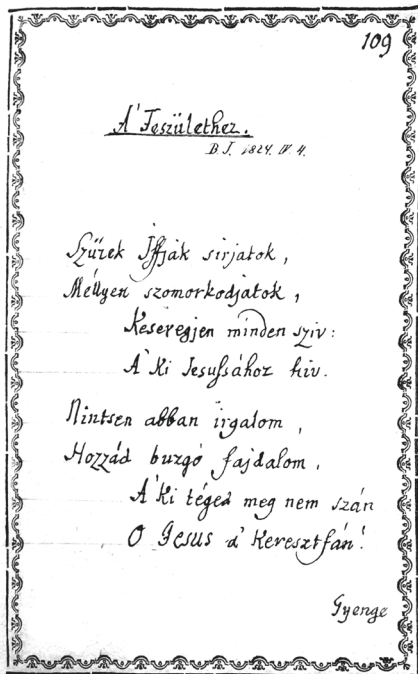 109
A' Feszülethez.
B. J. 1824. IV. 4.
Szüzek Iffják sirjatok,
Méllyen szomorkodjatok,
Keseregjen minden sziv:
A' Ki Jesussához hiv.
Nintsen abban irgalom,
Hozzád buzgó fajdalom,
A' Ki téged meg nem szán
O Jesus a' Keresztfán!
Gyenge